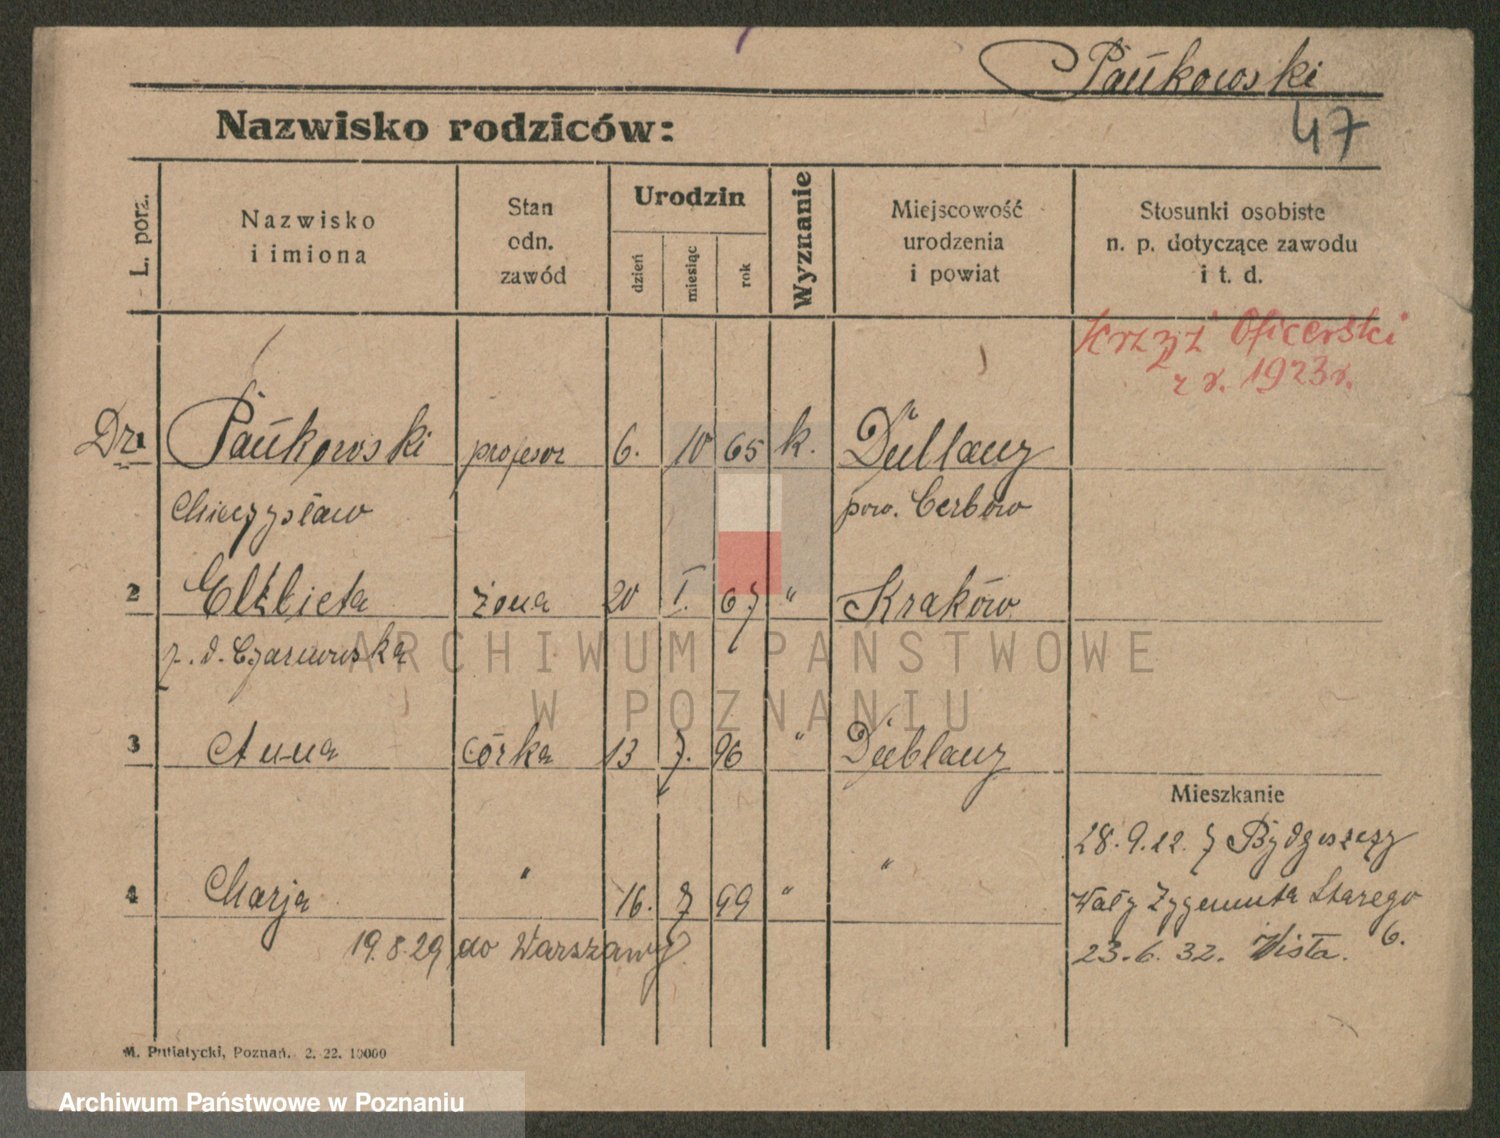 Pańkowski
47
Nazwisko rodziców:
L. porz.
Nazwisko
i imiona
Stan
odn.
zawód
Urodzin
dzień
miesiąc
rok
Wyznanie
Miejscowość
urodzenia
i powiat
Stosunki osobiste
n. p. dotyczące zawodu
i t. d.
Krzyż Oficerski
z r. 1923 r.
Dr. 1 Pańkowski profesor 6. 10 65 k. Dublany
Mieczysław pow.
2 Elżbieta żona 20 I. 67 " Kraków
z. d. Czarnowska
3 Anna córka 13 7. 96 " Dublany
Mieszkanie
28. 9. 22. z Bydgoszczy
4 Marja " 16. 7 99 " "
Wały Zygmunta Starego
6.
19. 8. 29 do Warszawy
23. 6. 32. Wisła.
M. Putiatycki, Poznań. 2. 22. 10000
ARCHIWUM PAŃSTWOWE
W POZNANIU
Archiwum Państwowe w Poznaniu